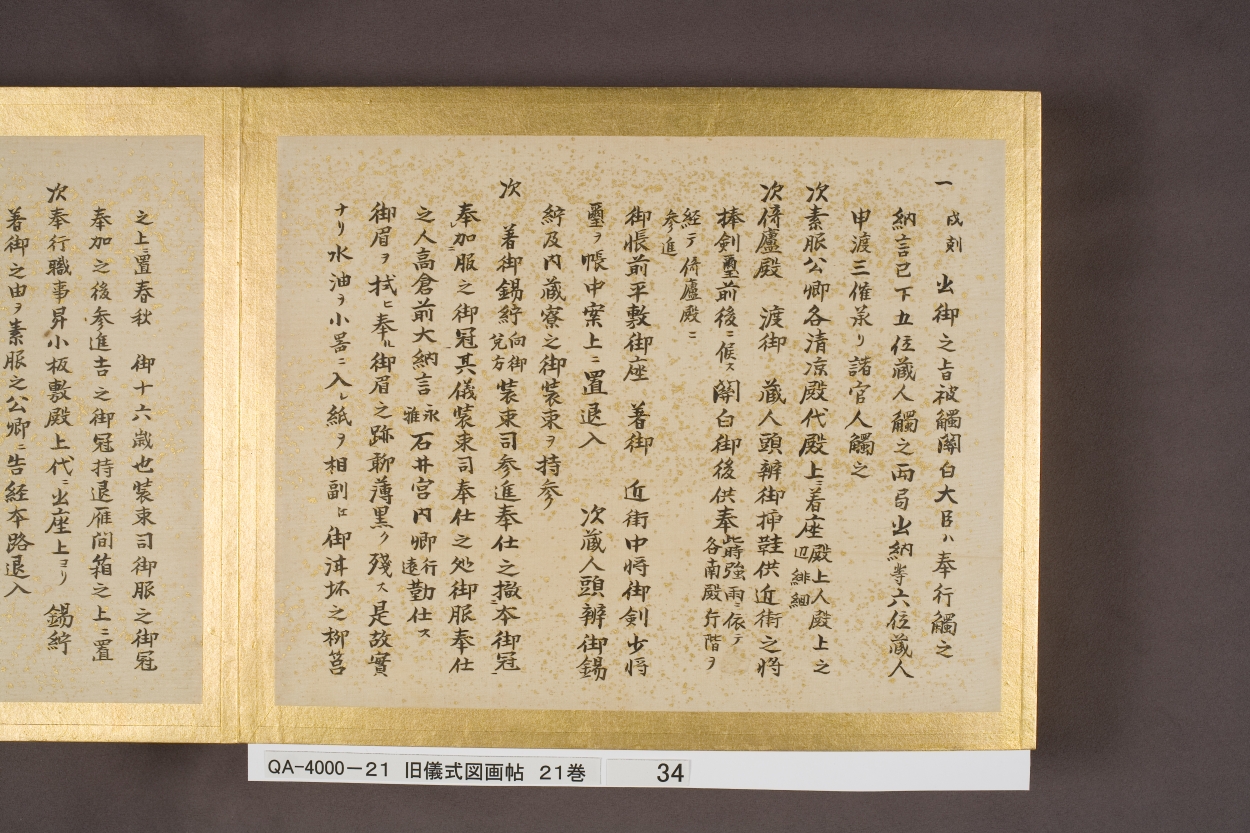 一 戌刻 出御之旨被觸關白大臣ハ奉行觸之
納言已下五位蔵人觸之両局出納等六位蔵人
申渡三催ヨリ諸官人觸之
次素服公卿各清凉殿代殿上ニ着座殿上人殿上之辺緋細
次倚廬殿 渡御 蔵人頭辨御挿鞋供近衛之将
捧剣璽前後ニ候ス關白御後供奉此時強雨ニ依テ各南殿斤階ヲ
経テ倚廬殿ニ参進
御帳前平敷御座 着御 近衛中将御剣少将
璽ヲ帳中案上ニ置退入 次蔵人頭辨御錫
紵及内蔵寮之御装束ヲ持参
次 着御錫紵向御兌方装束司参進奉仕之撤本御冠
奉加服之御冠其儀装束司奉仕之処御服奉仕
之人高倉前大納言永雅石井宮内卿行遠勤仕ス
御眉ヲ拭ヒ奉ル御眉之跡聊薄黒ク殘ス是故實
ナリ水油ヲ小器ニ入レ紙ヲ相副江御泔坏之柳筥
之上ニ置春秋 御十六歳也装束司御服之御冠
奉加之後参進吉之御冠持退雁間箱之上ニ置
次奉行職事昇小板敷殿上代ニ出座上ヨリ 錫紵
着御之由ヲ素服之公卿ニ告経本路退入
QA-4000-21 旧儀式図画帖 21巻 34